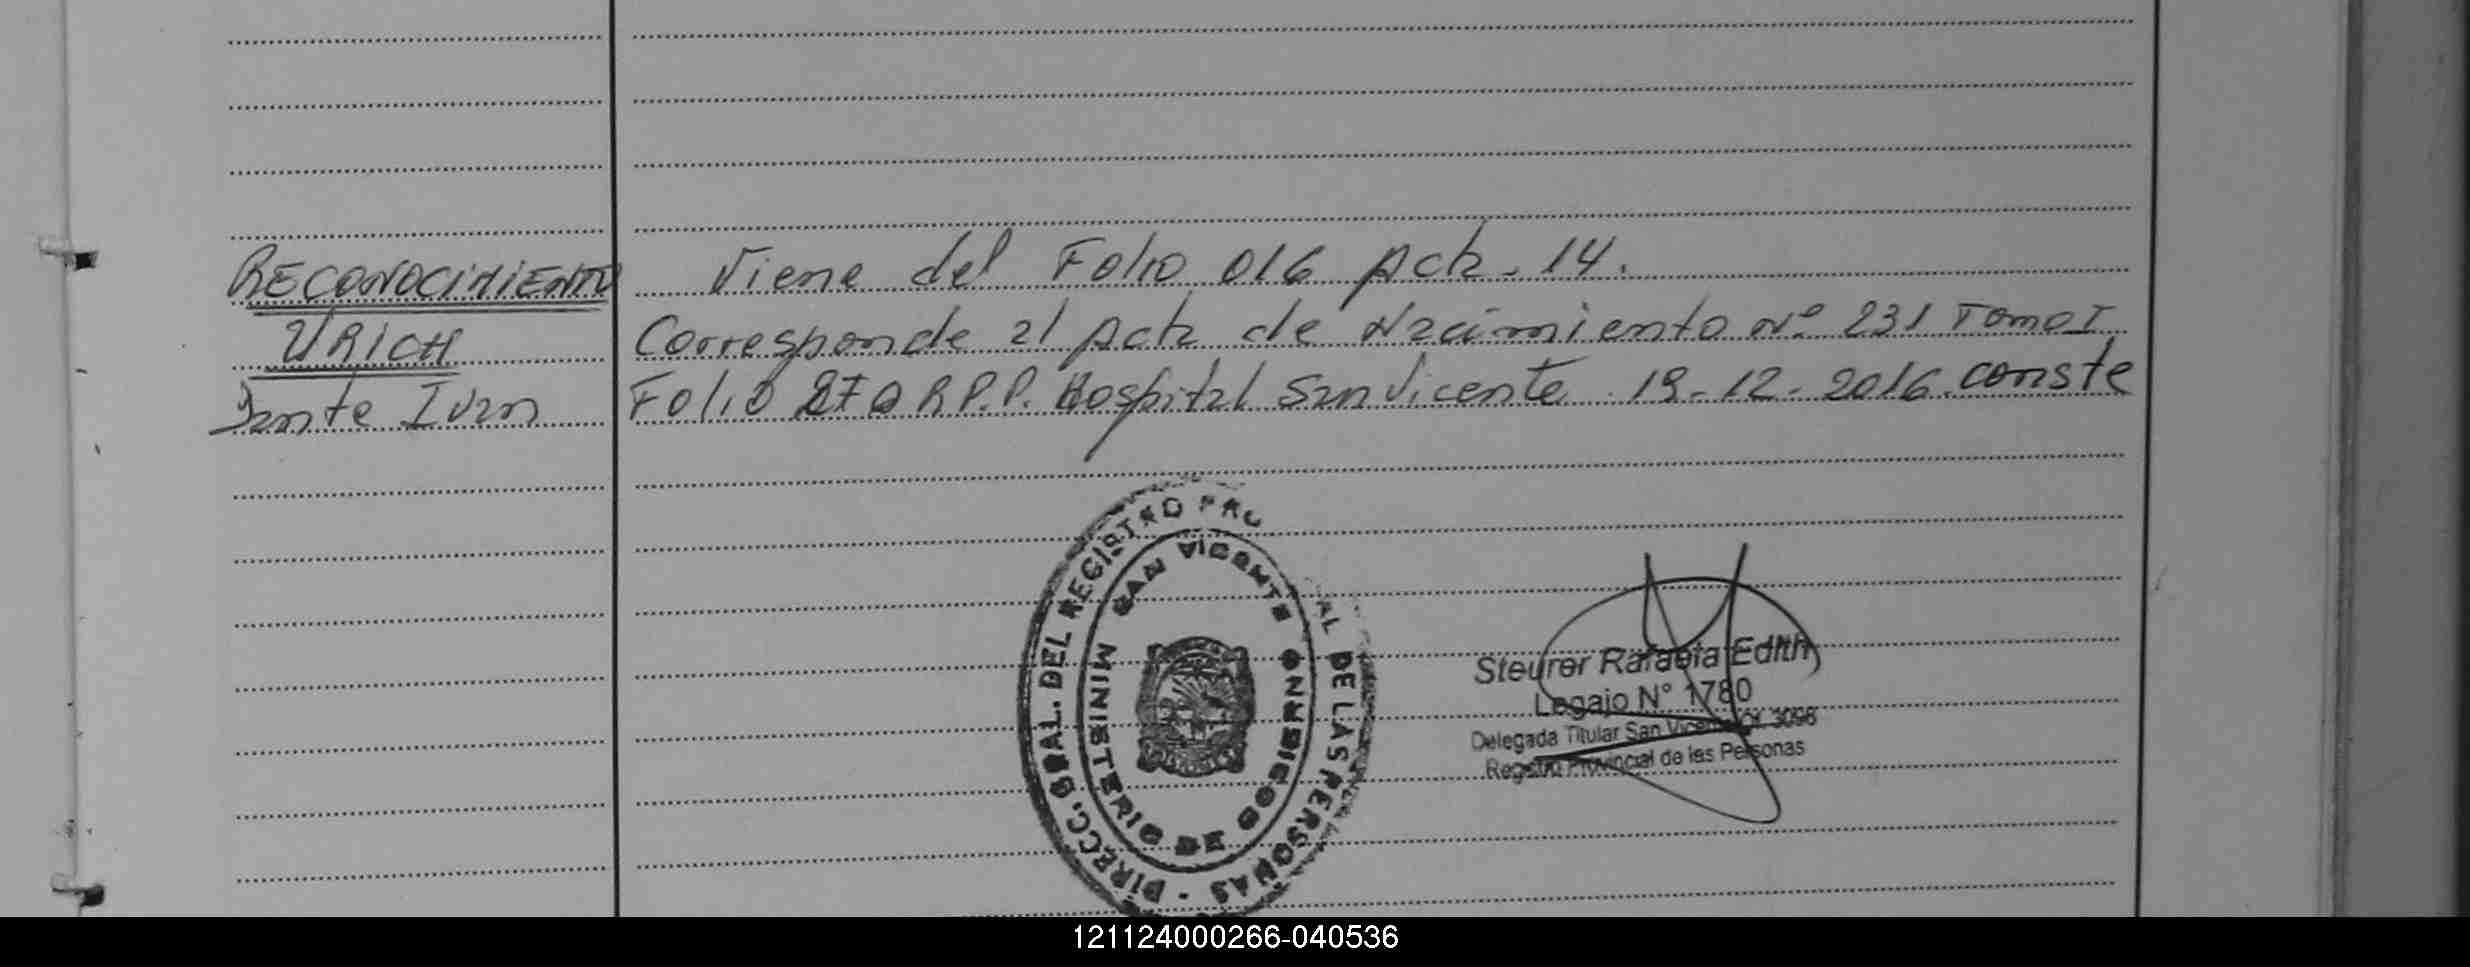 RECONOCIMIENTO
URICH
Dante Ivan
Viene del Folio 016 Acta. 14.
Corresponde al Acta de Nacimiento Nº 231 Tomo I
Folio R.P.P. Hospital San Vicente. 19-12-2016. conste
DIRECC. GRAL. DEL REGISTRO PRO AL DE LAS PERSONAS -
MINISTERIO DE GOBIERNO
SAN VICENTE
Steurer Rafaela Edith
Legajo N° 1780
Delegada Titular San Vicente Of. 3098
Registro Provincial de las Personas
121124000266-040536